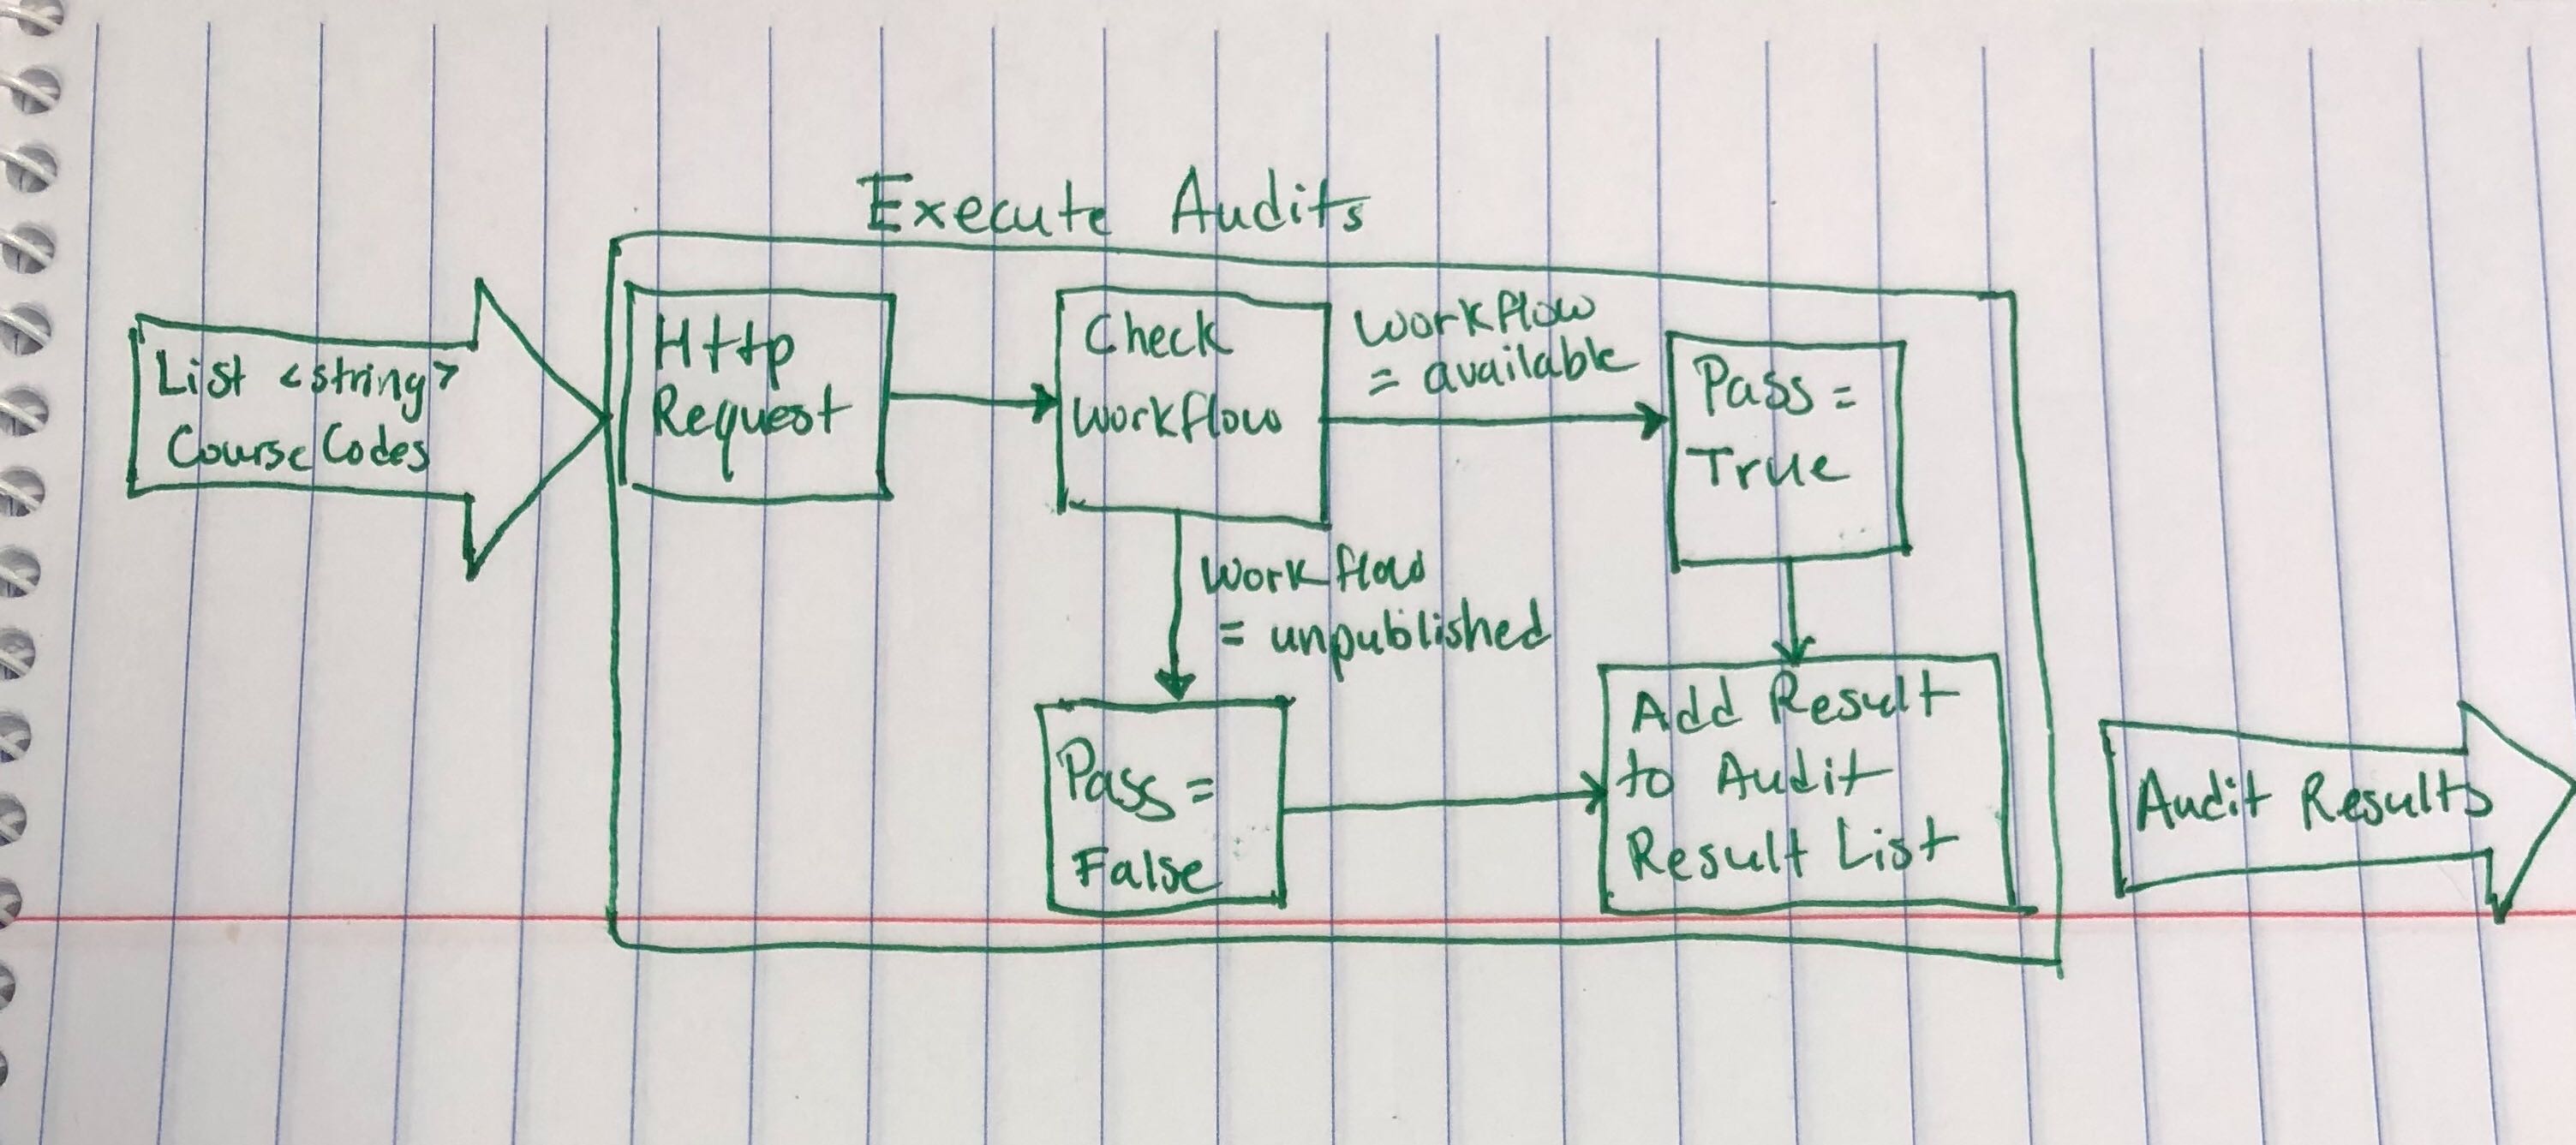 Execute Audits
List <string>
Course Codes
Http
Request
Check
Workflow
Workflow
= available
Pass =
True
Workflow
= unpublished
Pass =
False
Add Result
to Audit
Result List
Audit Results